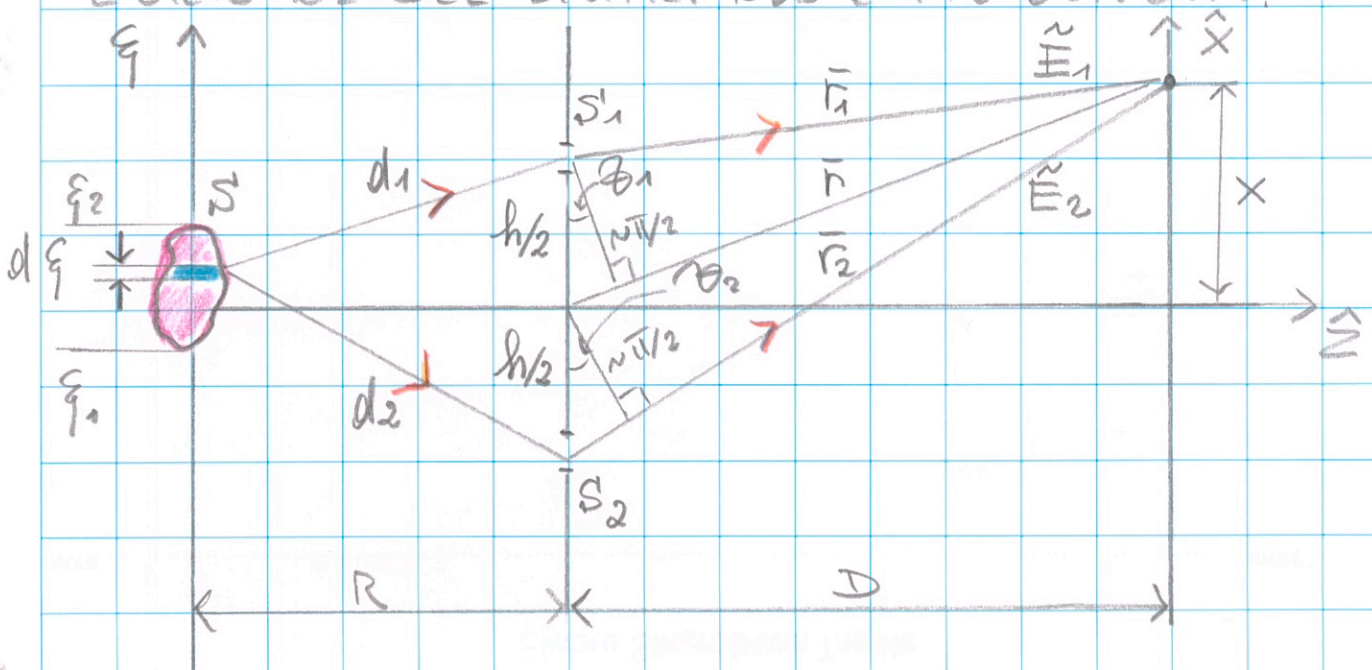 ξ
x̂
Ẽ1
r̄1
S1
d1
θ1
r̄
Ẽ2
x
ξ2
S
h/2
~π/2
r̄2
dξ
θ2
ẑ
h/2
~π/2
ξ1
d2
S2
R
D